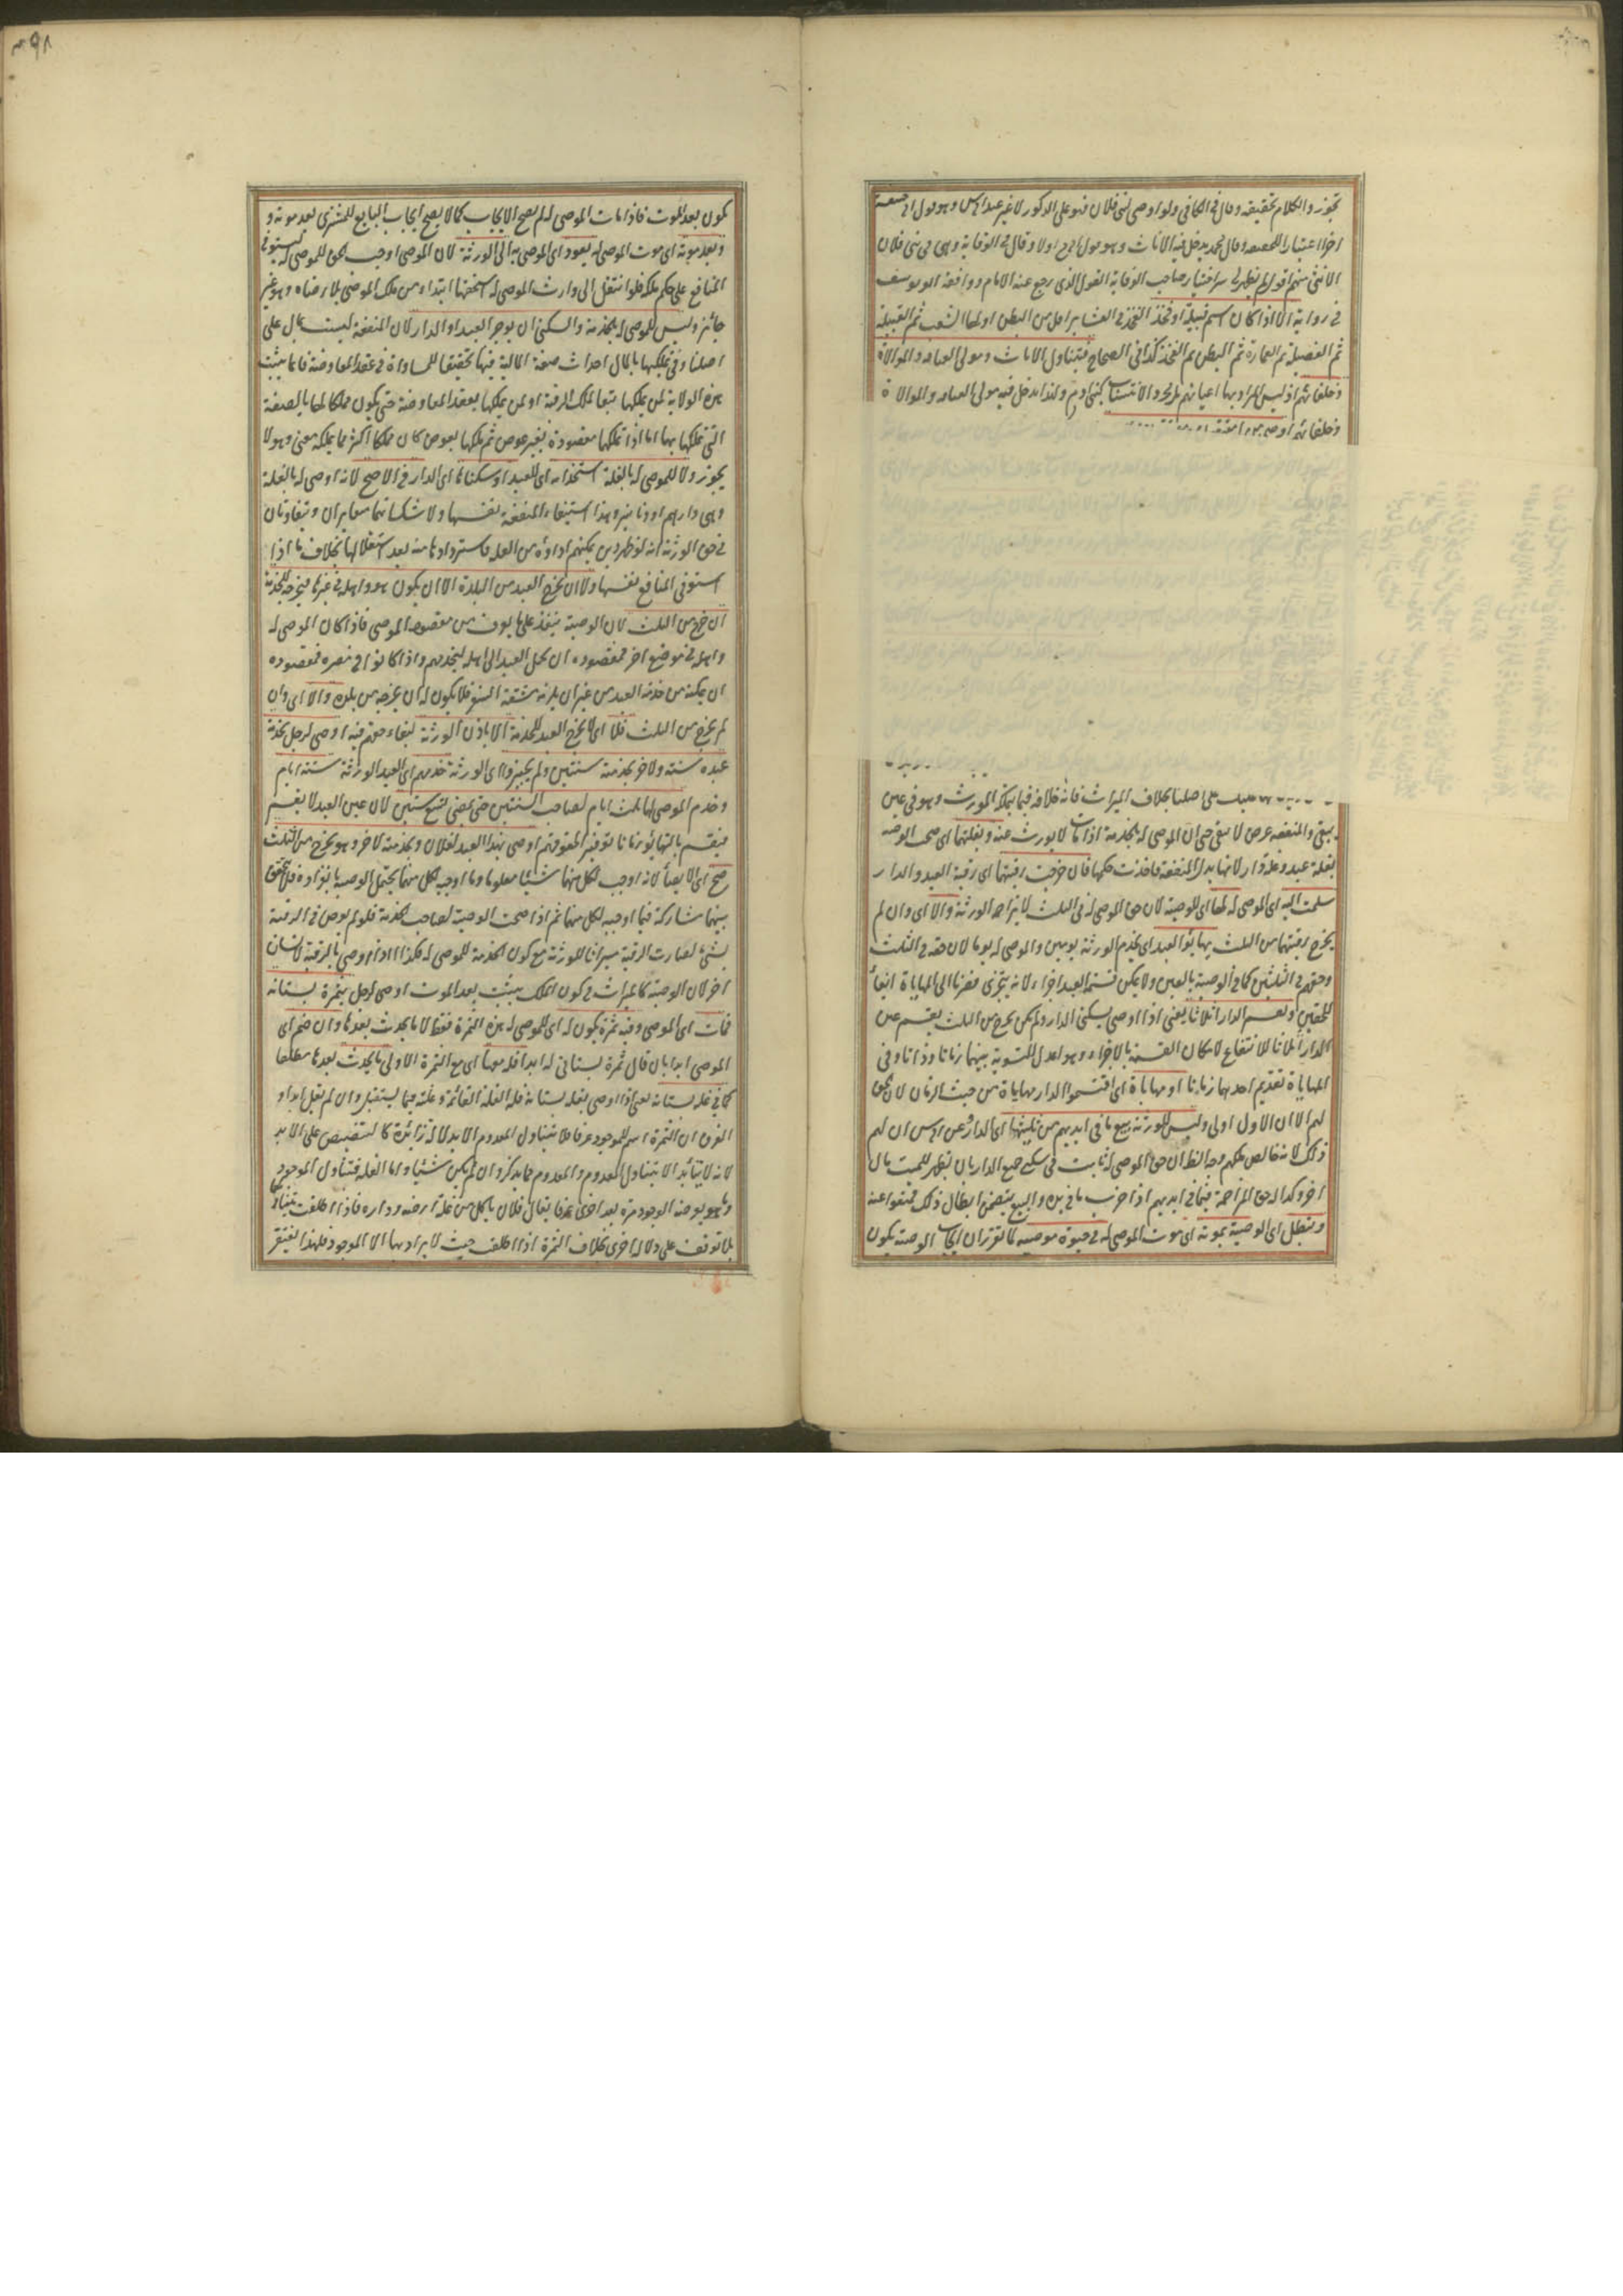 تجوز والكلام بحقيقته وقال في الكافي ولو اوصى لبني فلان فهو على الذكور لا غير عند ابي وهو قول ابي حنيفة
اخرا اعتبارا للحقيقة وقال محمد يدخل فيه الاناث وهو قول ابي ح اولا وقال في الوقاية وهي في بني فلان
الانثى منهم اقول لم يظهر لي سر اختيار صاحب الوقاية القول الذي رجع عنه الامام ووافقه ابو يوسف
في رواية الا اذا كان اسم قبيلة او فخذ الفخذ في العشائر اقل من البطن اولها الشعب ثم القبيلة
ثم الفصيلة ثم العمارة ثم البطن ثم الفخذ كذا في الصحاح فيتناول الاناث ومولى العتاقة والموالاة
وحلفائهم اذ ليس المراد بها اعيانهم بل مجرد الانتساب كبني ادم ولهذا يدخل فيه مولى العتاقة والموالاة
وحلفائهم اوصى
على اصلنا بخلاف الميراث فانه خلافة فيما يملكه المورث وهو في عين
يبقى والمنفعة عرض لا يبقى حتى ان الموصى له بالخدمة اذا مات لا يورث عنه وبغلتهما اي صحت الوصية
بغلة عبد وغلة دار لانها بدل المنفعة فاخذت حكمها فان خرجت رقبتهما اي رقبة العبد والدار
سلمت اليه اي الموصى له لها اي للوصية لان حق الموصى له في الثلث لا يزاحمه الورثة والا اي وان لم
يخرج رقبتهما من الثلث يهايؤ العبد اي يخدم الورثة يومين والموصى له يوما لان حقه في الثلث
وحقهم في الثلثين كما في الوصية بالعين ولا يمكن قسمة العبد اجزاء لانه لا يتجزى فصرنا الى المهاياة ايفاء
للحقين ويقسم الدار اثلاثا يعني اذا اوصى بسكنى الدار ولم يكن يخرج من الثلث يقسم عين
الدار اثلاثا للانتفاع لامكان القسمة بالاجزاء وهو اعدل للتسوية بينهما زمانا وذاتا وفي
المهاياة تقديم احدهما زمانا او مهاياة اي اقتسموا الدار مهاياة من حيث الزمان لان الحق
لهم الا ان الاول اولى وليس للورثة بيع ما في ايديهم من ثلثيها اي الدار وعن ابي س ان لهم
ذلك لانه خالص ملكهم وجه الظ ان حق الموصى له ثابت في سكنى جميع الدار بان يظهر للميت مال
اخر وكذا له حق المزاحمة فيما في ايديهم اذا خرب ما في يده والبيع يتضمن ابطال ذلك فمنعوا عنه
وتبطل اي الوصية بموته اي موت الموصى له في حيوة موصيه لما تقرر ان ايجاب الوصية يكون
يكون بعد الموت فاذا مات الموصى له لم يصح الايجاب كما لا يصح ايجاب البايع للمشتري بعد موته و
وبعد موته اي موت الموصى له يعود اي الموصى به الى الورثة لان الموصي اوجب الحق للموصى له ليستوفي
المنافع على حكم ملكه فلو انتقل الى وارث الموصى له استحقها ابتداء من ملك الموصي بلا رضاه وهو غير
جائز وليس للموصى له بالخدمة والسكنى ان يوجر العبد او الدار لان المنفعة ليست بمال على
اصلنا وفي تمليكها بالمال احداث صفة المالية فيها تحقيقا للمساواة في عقد المعاوضة فانما يثبت
هذه الولاية لمن يملكها تبعا لملك الرقبة او لمن يملكها بعقد المعاوضة حتى يكون مملكا لها بالصفة
التي تملكها بها اما اذا تملكها مقصودة بغير عوض ثم يملكها بعوض كان مملكا اكثر مما يملكه معنى وهو لا
يجوز ولا للموصى له بالغلة استخدامه اي للعبد او سكناها اي الدار في الاصح لانه اوصى له بالغلة
وهي دراهم او دنانير وهذا استيفاء المنفعة نفسها ولا شك انهما متغايران ومتفاوتان
في حق الورثة فانه لو ظهر دين يمكنهم اداؤه من الغلة باستردادها منه بعد استغلالها بخلاف ما اذا
استوفى المنافع نفسها ولا ان يخرج العبد من البلدة الا ان يكون هو واهله في غيرها فيخرجه للخدمة
ان خرج من الثلث لان الوصية تنفذ على ما يعرف من مقصود الموصي فاذا كان الموصى له
واهله في موضع اخر فمقصوده ان يحمل العبد الى اهله ليخدمهم واذا كانوا في مصره فمقصوده
ان يمكنه من خدمة العبد من غير ان يلزمه مشقة السفر فلا يكون له ان يخرجه من بلده والا اي وان
لم يخرج من الثلث فلا اي لا يخرج العبد للخدمة الا باذن الورثة لبقاء حقهم فيه اوصى لرجل بخدمة
عبده سنة ولاخر بخدمته سنتين ولم يجيزوا اي الورثة خدمهم اي العبد الورثة ستة ايام
وخدم الموصى لهما ثلث ايام لصاحب السنتين حتى يمضي تسع سنين لان عين العبد لا يقسم
فيقسم بالتهايؤ زمانا توفيرا لحقوقهم اوصى بهذا العبد لفلان وبخدمته لاخر وهو يخرج من الثلث
صح اي الايصاء لانه اوجب لكل منهما شيئا معلوما وما اوجبه لكل منهما يحتمل الوصية بانفراده فلا يتحقق
بينهما مشاركة فيما اوجبه لكل منهما ثم اذا صحت الوصية لصاحب الخدمة فلو لم يوص في الرقبة
بشئ لصارت الرقبة ميراثا للورثة مع كون الخدمة للموصى له فكذا اذا اوصى بالرقبة لانسان
اخر لان الوصية كالميراث في كون الملك يثبت بعد الموت اوصى لرجل بثمرة بستانه
فمات اي الموصي وفيه ثمرة يكون له اي للموصى له هذه الثمرة فقط لا ما يحدث بعدها وان ضم اي
الموصي ابدا بان قال ثمرة بستاني له ابدا فله معها اي مع الثمرة الاولى ما يحدث بعدها مطلقا
كما في غلة بستانه يعني اذا اوصى بغلة بستانه فله الغلة القائمة وغلته فيما يستقبل وان لم يقل ابدا و
الفرق ان الثمرة اسم للموجود عرفا فلا يتناول المعدوم الا بدلالة زائدة كالتنصيص على الابد
لانه لا يتأبد الا بتناول المعدوم والمعدوم مما يذكر وان لم يكن شيئا واما الغلة فتتناول الموجود
وما هو بعرضة الوجود مرة بعد اخرى عرفا يقال فلان ياكل من غلة ارضه وداره فاذا اطلقت يتناولهما
بلا توقف على دلالة اخرى بخلاف الثمرة اذا اطلقت حيث لا يراد بها الا الموجود فلهذا يفتقر